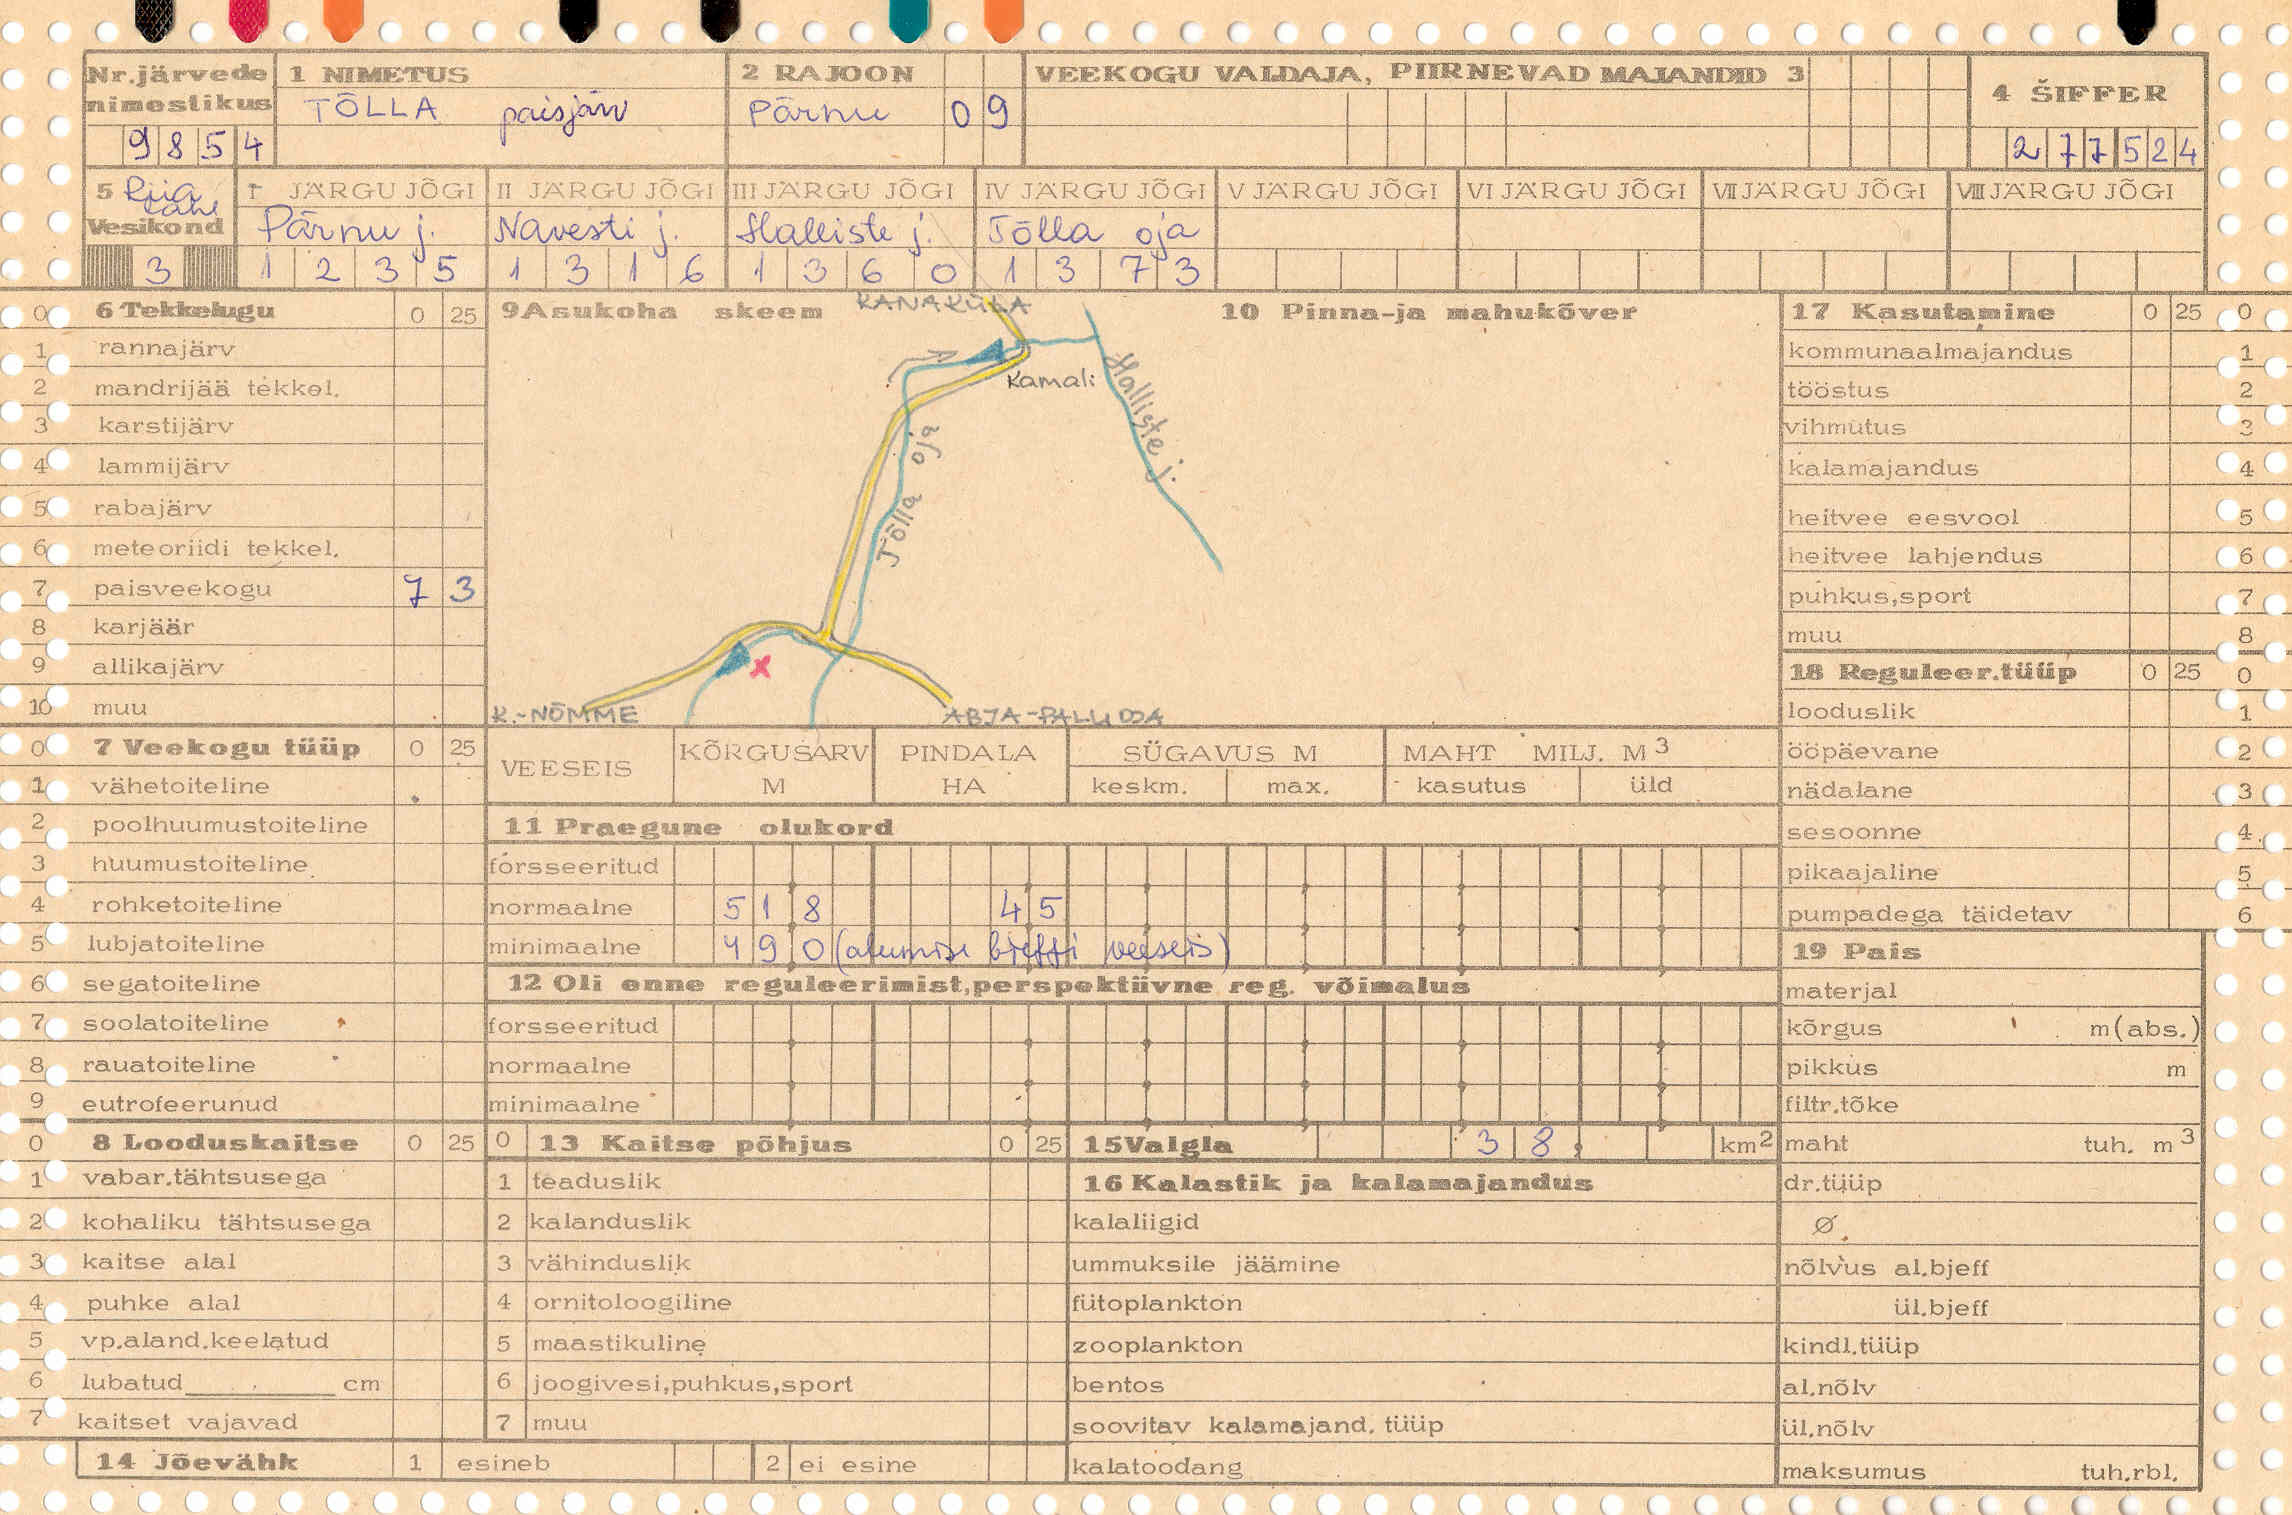 Nr.järvede nimestikus
9854
1 NIMETUS
TÕLLA paisjärv
2 RAJOON
Pärnu 09
VEEKOGU VALDAJA, PIIRNEVAD MAJANDID 3
4 ŠIFFER
277524
5 Riia lahe
Vesikond
3
I JÄRGU JÕGI
Pärnu j.
1235
II JÄRGU JÕGI
Navesti j.
1316
III JÄRGU JÕGI
Halliste j.
1360
IV JÄRGU JÕGI
Tõlla oja
1373
V JÄRGU JÕGI
VI JÄRGU JÕGI
VII JÄRGU JÕGI
VIII JÄRGU JÕGI
0 6 Tekkelugu 0 25
1 rannajärv
2 mandrijää tekkel.
3 karstijärv
4 lammijärv
5 rabajärv
6 meteoriidi tekkel.
7 paisveekogu 7 3
8 karjäär
9 allikajärv
10 muu
0 7 Veekogu tüüp 0 25
1 vähetoiteline
2 poolhuumustoiteline
3 huumustoiteline
4 rohketoiteline
5 lubjatoiteline
6 segatoiteline
7 soolatoiteline
8 rauatoiteline
9 eutrofeerunud
0 8 Looduskaitse 0 25
1 vabar.tähtsusega
2 kohaliku tähtsusega
3 kaitse alal
4 puhke alal
5 vp.aland.keelatud
6 lubatud cm
7 kaitset vajavad
14 Jõevähk 1 esineb 2 ei esine
9 Asukoha skeem
KANAKÜLA
Kamali
Halliste j.
Tõlla oja
x
K.-NÕMME
ABJA-PALUOJA
10 Pinna-ja mahukõver
VEESEIS
KÕRGUSARV M
PINDALA HA
SÜGAVUS M
keskm. max.
MAHT MILJ. M3
kasutus üld
11 Praegune olukord
forsseeritud
normaalne 518 45
minimaalne 490 (alumise bjeffi veeseis)
12 Oli enne reguleerimist,perspektiivne reg. võimalus
forsseeritud
normaalne
minimaalne
0 13 Kaitse põhjus 0 25
1 teaduslik
2 kalanduslik
3 vähinduslik
4 ornitoloogiline
5 maastikuline
6 joogivesi,puhkus,sport
7 muu
15 Valgla 38, km2
16 Kalastik ja kalamajandus
kalaliigid
ummuksile jäämine
fütoplankton
zooplankton
bentos
soovitav kalamajand. tüüp
kalatoodang
17 Kasutamine 0 25 0
kommunaalmajandus 1
tööstus 2
vihmutus 3
kalamajandus 4
heitvee eesvool 5
heitvee lahjendus 6
puhkus,sport 7
muu 8
18 Reguleer.tüüp 0 25 0
looduslik 1
ööpäevane 2
nädalane 3
sesoonne 4
pikaajaline 5
pumpadega täidetav 6
19 Pais
materjal
kõrgus m(abs.)
pikkus m
filtr.tõke
maht tuh. m3
dr.tüüp
Ø
nõlvus al.bjeff
ül.bjeff
kindl.tüüp
al.nõlv
ül.nõlv
maksumus tuh.rbl.